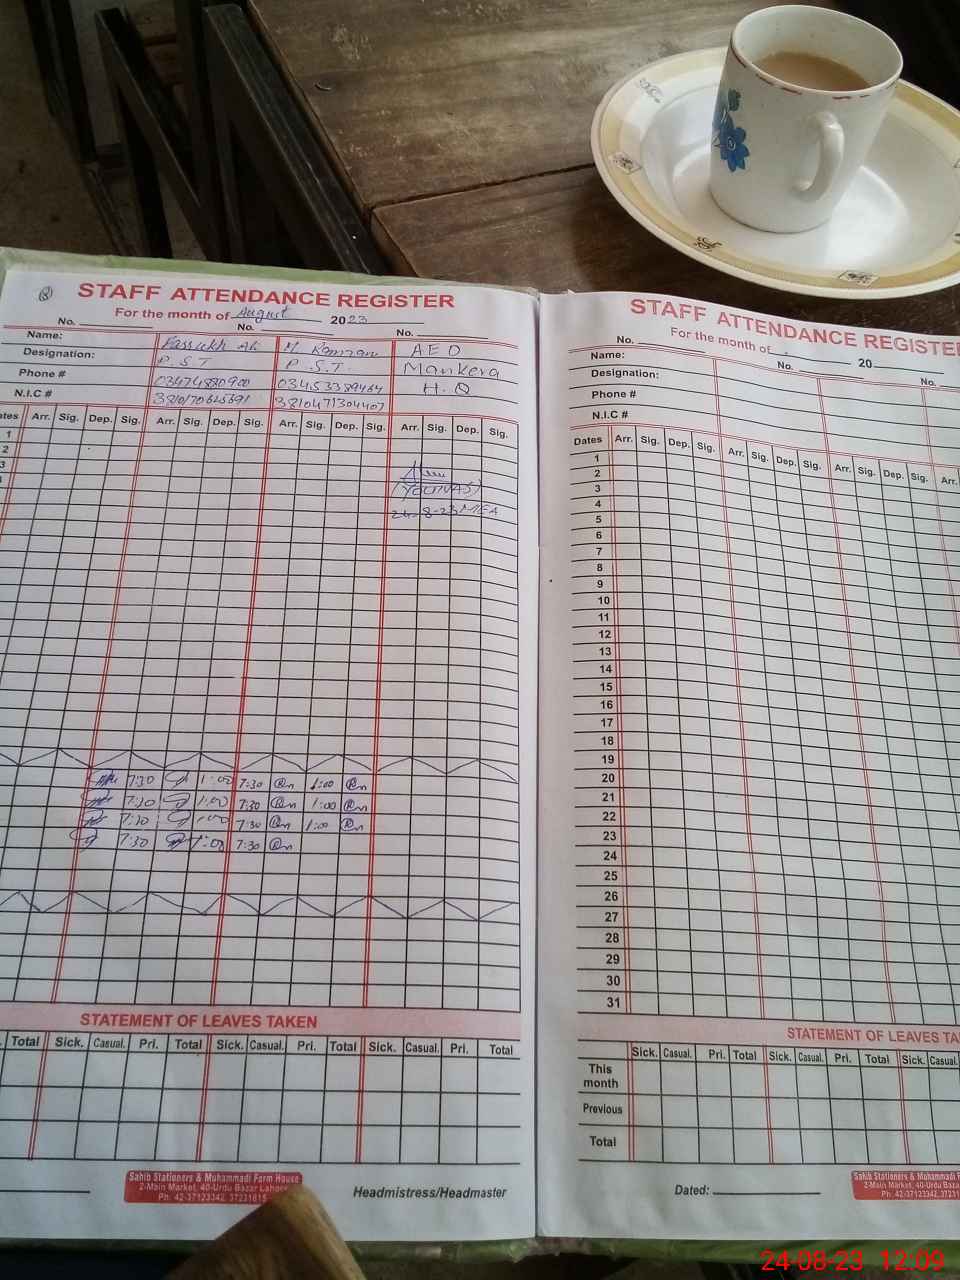 STAFF ATTENDANCE REGISTER
For the month of August 2023
No. No. No.
Name: M. Kamran AEO
Designation: P.S.T P.S.T. Mankera
Phone # 03474880900 03453389464 H.Q
N.I.C # 3810471304407
Arr. Sig. Dep. Sig. Arr. Sig. Dep. Sig. Arr. Sig. Dep. Sig. Arr. Sig. Dep. Sig.
1
2
3
(YOUNAS)
24-8-23 MEA
7:30 1:00 7:30 1:00
7:30 1:00 7:30 1:00
7:30 1:00 7:30 1:00
7:30 1:00 7:30
STATEMENT OF LEAVES TAKEN
Total Sick. Casual. Pri. Total Sick. Casual. Pri. Total Sick. Casual. Pri. Total
Sahib Stationers & Muhammadi Form House
2-Main Market, 40-Urdu Bazar Lahore
Ph: 42-37123342, 37231815
Headmistress/Headmaster
STAFF ATTENDANCE REGISTER
For the month of 20
No. No. No.
Name:
Designation:
Phone #
N.I.C #
Dates Arr. Sig. Dep. Sig. Arr. Sig. Dep. Sig. Arr. Sig. Dep. Sig. Arr.
1
2
3
4
5
6
7
8
9
10
11
12
13
14
15
16
17
18
19
20
21
22
23
24
25
26
27
28
29
30
31
STATEMENT OF LEAVES TA
Sick. Casual. Pri. Total Sick. Casual. Pri. Total Sick. Casual
This month
Previous
Total
Dated:
Sahib Stationers & Muhammadi F
2-Main Market, 40-Urdu Baza
Ph: 42-37123342, 37231
24-08-23 12:09